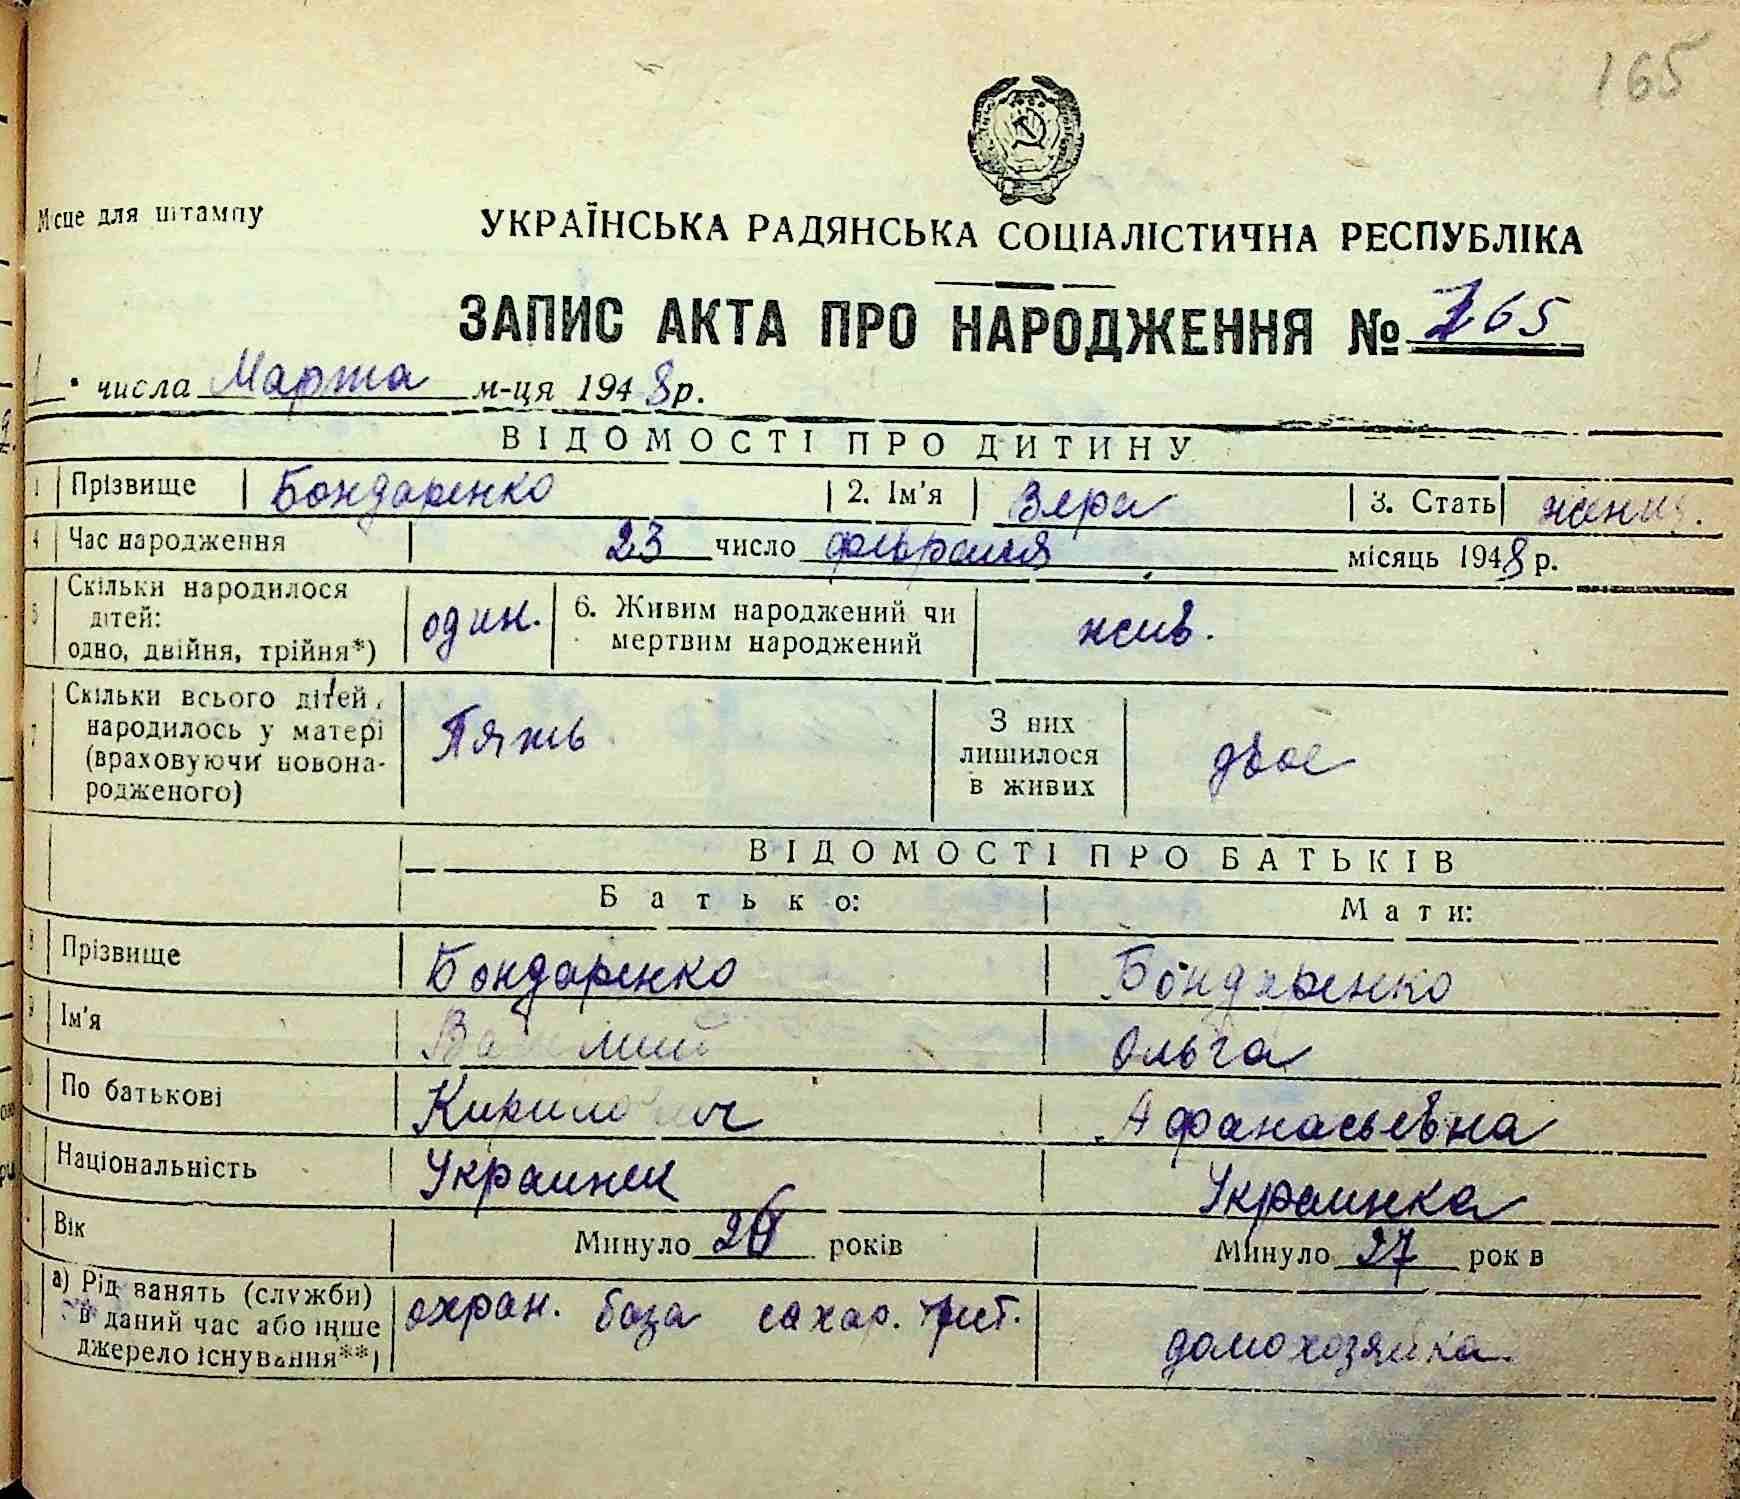 165
Місце для штампу
УКРАЇНСЬКА РАДЯНСЬКА СОЦІАЛІСТИЧНА РЕСПУБЛІКА
ЗАПИС АКТА ПРО НАРОДЖЕННЯ № 165
1 числа Марта м-ця 1948 р.
ВІДОМОСТІ ПРО ДИТИНУ
1 Прізвище Бондаренко 2. Ім'я Вера 3. Стать женщ.
4 Час народження 23 число февраля місяць 1948 р.
5 Скільки народилося дітей: одно, двійня, трійня*) один. 6. Живим народжений чи мертвим народжений жив.
7 Скільки всього дітей народилось у матері (враховуючи новонародженого) Пять З них лишилося в живих двое
ВІДОМОСТІ ПРО БАТЬКІВ
Батько: Мати:
8 Прізвище Бондаренко Бондаренко
9 Ім'я Василий Ольга
По батькові Кирилович Афанасьевна
Національність Украинец Украинка
Вік Минуло 26 років Минуло 27 років
а) Рід занять (служби) в даний час або інше джерело існування**) охран. база сахар. трест. домохозяйка.